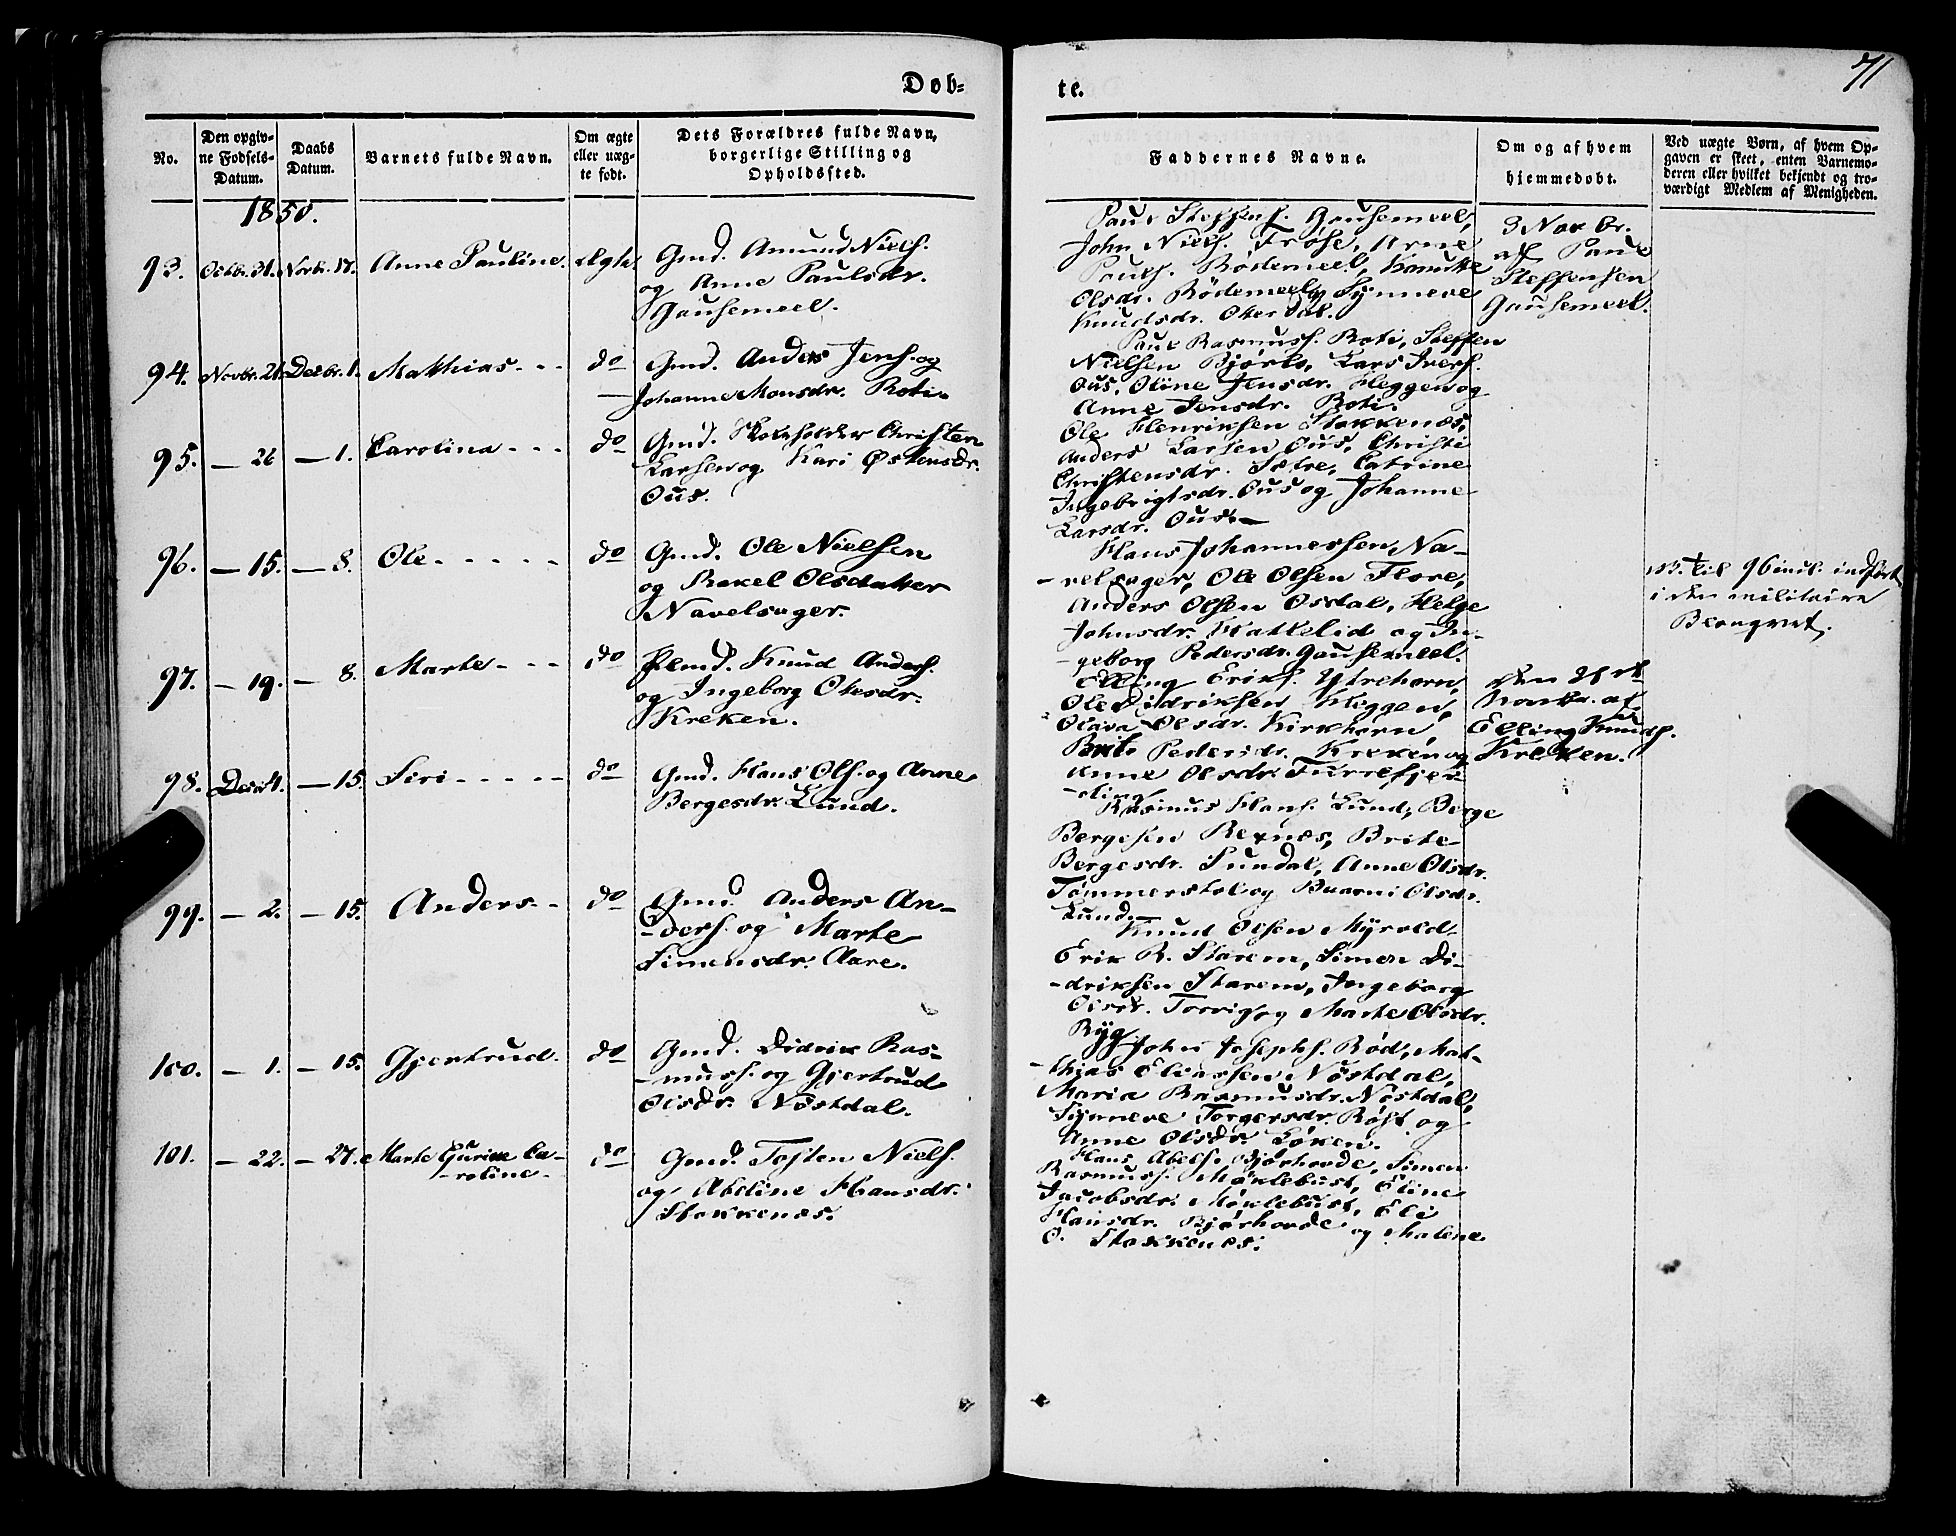 71
Dob=
te.
No.
Den opgiv=
ne Fodsels=
Datum.
Daabs
Datum.
Barnets fulde Navn.
Om ægte
eller uæg=
te født.
Dets Forældres fulde Navn,
borgerlige Stilling og
Opholdssted.
Faddernes Navne.
Om og af hvem
hjemmedobt.
Ved uægte Børn, af hvem Op=
gaven er skeet, enten Barnemo=
deren eller hvilket bekjendt og tro=
værdigt Medlem af Menigheden.
1850.
93. Octbr. 31. Novbr. 17. Anne Pauline. Ægte
Gmd. Amund Niels.
og Anne Paulsdr.
Gausemeel.
Paul Steffens. Gausemeel,
John Niels. Frøse, Arne
Pauls. Rødemeel, Kanutte
Olsdr. Rødemeel og Synneve
Knudsdr. Oterdal.
3 Novbr.
af Paul
Steffensen
Gausemeel.
94. Novbr. 21. Decbr. 1. Mathias - - - do
Gmd. Anders Jens. og
Johanne Monsdr. Roti.
Paul Rasmuss. Roti, Steffen
Nielsen Bjørlo, Lars Ivers.
Ous, Oline Jensdr. Heggen og
Anne Jensdr. Roti.
95. — 26 — 1. Carolina - - - do
Gmd. Skoleholder Christen
Larsen og Kari Østensdr.
Ous.
Ole Henriksen Stokkenæs,
Anders Larsen Ous, Christi
Christensdr. Sætre, Catrine
Ingebrigtsdr. Ous og Johanne
Larsdr. Ous. —
96. — 15. — 8. Ole - - - - - do
Gmd. Ole Nielsen
og Rakel Olsdatter
Navelsager.
Hans Johannessen Na-
-velsager, Ole Olsen Flore,
Anders Olsen Osdal, Helge
Johnsdr. Hattelid og In-
-geborg Pedersdr. Gausemeel.
til 96 incl. indført
i den militaire
97. — 19. — 8. Marte - - - do
Plmd. Knud Anders.
og Ingeborg Olesdr.
Kreken.
Elling Eriks. Ytrehorn,
Ole Didriksen Heggen,
Olava Olsdr. Kirkhorn,
Brite Pedersdr. Kreken og
Anne Olsdr. Furrefjer-
-ding
Den 21de
Novbr. af
Elling Knuds.
Kreken.
98. Decbr 4. — 15. Siri - - - - - do
Gmd. Hans Ols. og Anne
Bergesdr. Lund.
Rasmus Hans. Lund, Berge
Bergesen Rexnæs, Brite
Bergesdr. Sundal, Anne Olsdr.
Tømmerstol og Olsdr.
Lund.
99. — 2. — 15. Anders - - do
Gmd. Anders An-
-ders. og Marte
Simensdr. Aare.
Knud Olsen Myrold,
Erik R. Starem, Simon Di-
-driksen Starem, Ingeborg
Olsdr. Torvig og Marte Olsdr.
Ryg
100. — 1. — 15. Gjertrud. do
Gmd. Didrik Ras-
-muss. og Gjertrud
Olsdr. Nøstdal.
John Josephs. Rød, Mat-
-thias Eliassen Nøstdal,
Maria Rasmusdr. Nøstdal,
Synneve Torgersdr. Røst og
Anne Olsdr. Løken.
101. — 22. — 27. Marte Gurine Ca-
-roline - do
Gmd. Tosten Niels.
og Abeline Hansdr.
Stokkenæs.
Hans Abels. Bjørhovde, Simen
Rasmuss. Møklebust, Eline
Jacobsdr. Møklebust, Eli
Hansdr. Bjørhovde og Malene
O. Stokkenes.